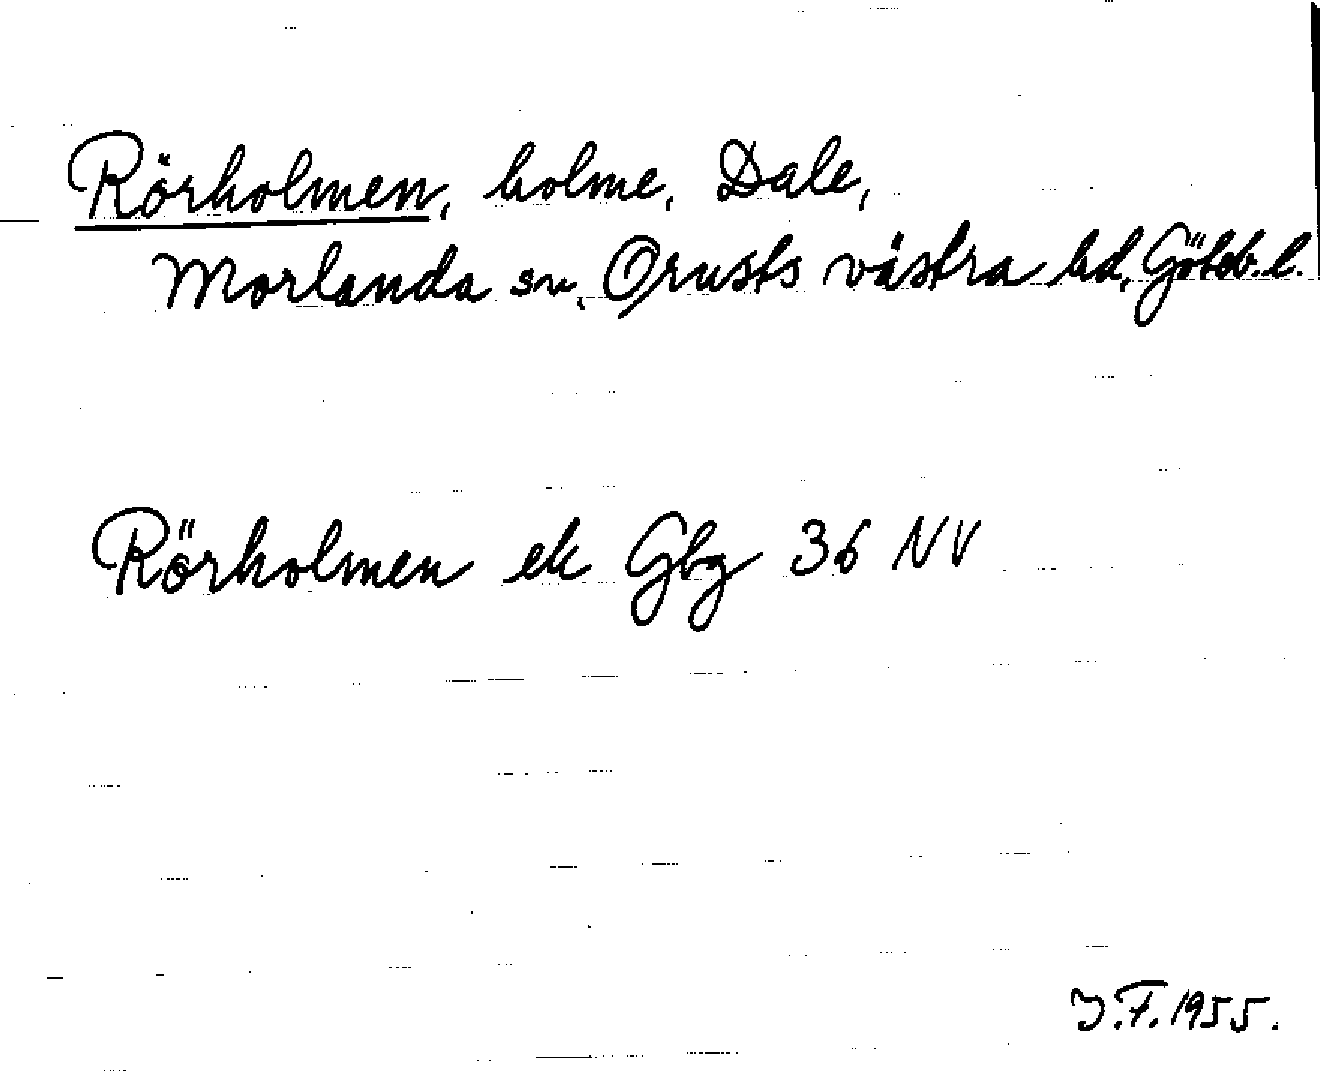 Rörholmen, holme, Dale,
Morlanda sn, Orusts västra hd, Göteb. l.
Rörholmen ek Gbg 36 NV
J.F. 1955.